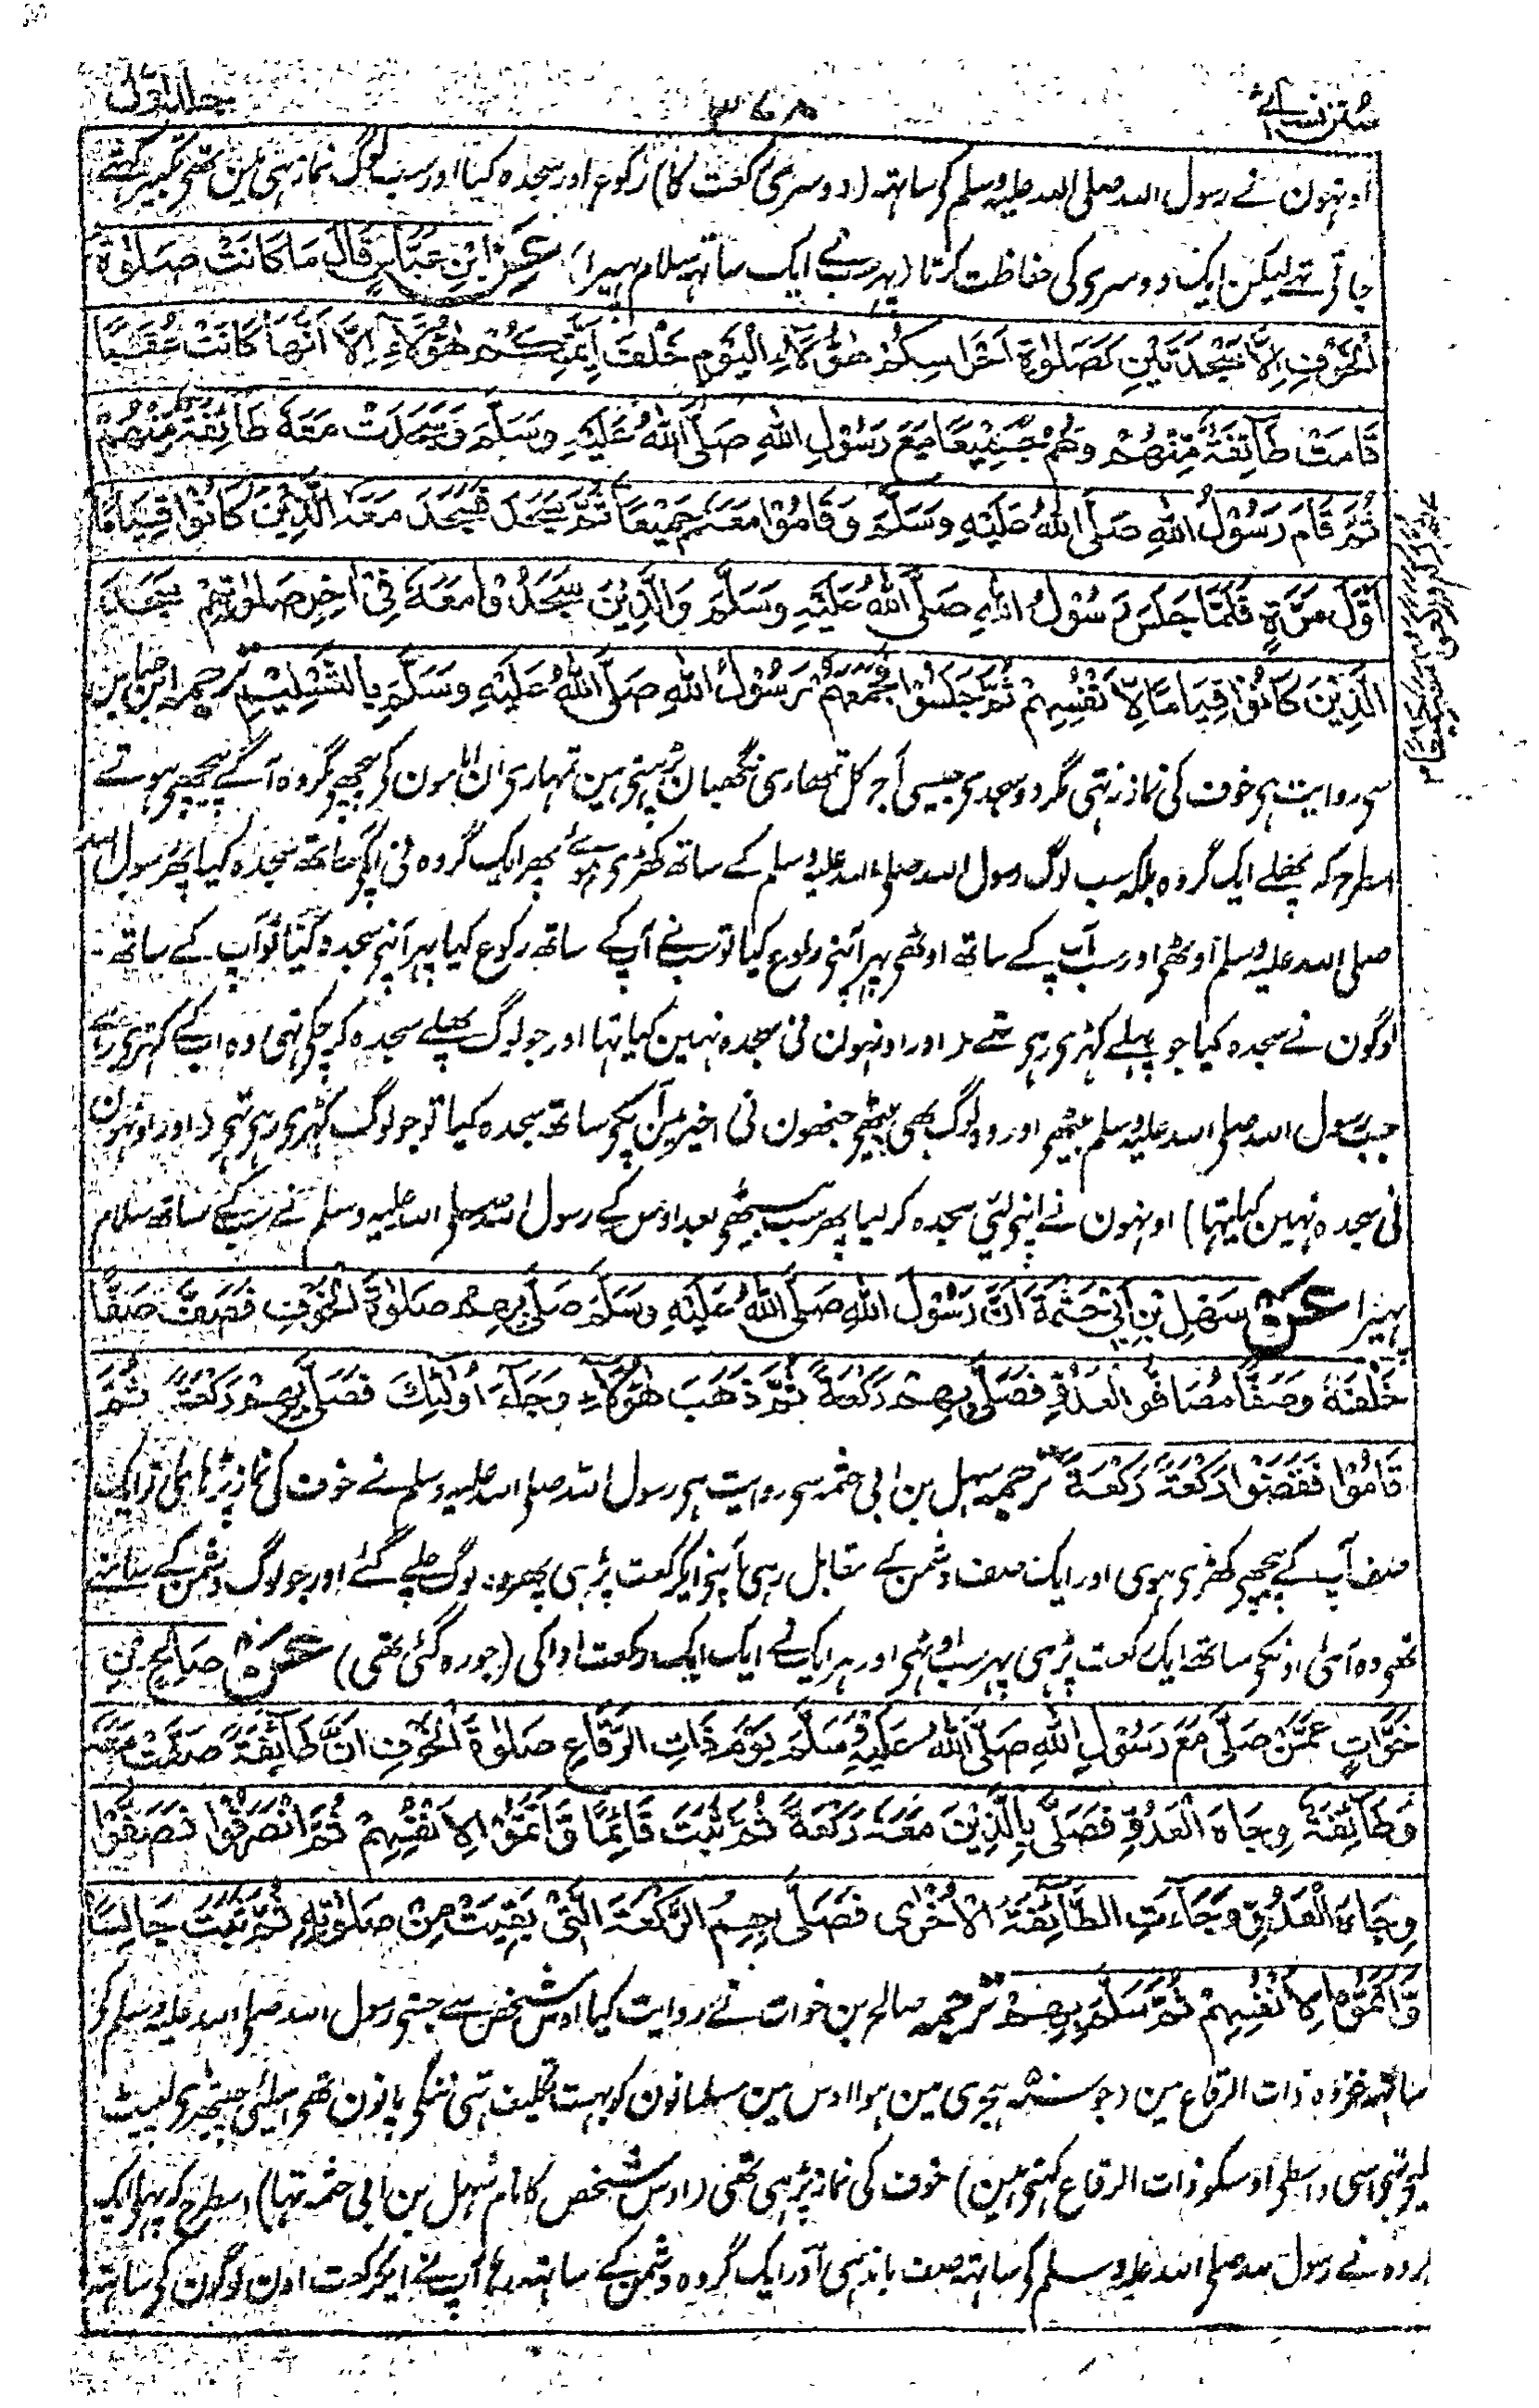 سنن نسائی ۳۶۸ جلد اول
اونہون نے رسول اللہ صلی اللہ علیہ وسلم کو ساتہہ (دوسری رکعت کا) رکوع اور سجدہ کیا اور سب لوگ نماز ہی مین تھی تکبیر کہتے
جاتی تہے لیکن ایک دوسری کی حفاظت کرتا (پہر سب نے ایک ساتہہ سلام پہیرا) عَنِ ابْنِ عَبَّاسٍ قَالَ مَا كَانَتْ صَلٰوةُ
الْخَوْفِ اِلَّا سَجْدَتَيْنِ كَصَلٰوةِ اَحْرَاسِكُمْ هٰؤُلَاءِ الْيَوْمَ خَلْفَ اَئِمَّتِكُمْ هٰؤُلَاءِ اِلَّا اَنَّهَا كَانَتْ عُقَبًا
قَامَتْ طَآئِفَةٌ مِّنْهُمْ وَهُمْ جَمِيْعًا مَعَ رَسُوْلِ اللهِ صَلَّى اللهُ عَلَيْهِ وَسَلَّمَ وَسَجَدَتْ مَعَهٗ طَائِفَةٌ مِّنْهُمْ
ثُمَّ قَامَ رَسُوْلُ اللهِ صَلَّى اللهُ عَلَيْهِ وَسَلَّمَ وَقَامُوْا مَعَهٗ جَمِيْعًا ثُمَّ سَجَدَ فَسَجَدَ مَعَهُ الَّذِيْنَ كَانُوْا قِيَامًا
اَوَّلَ مَرَّةٍ فَلَمَّا جَلَسَ رَسُوْلُ اللهِ صَلَّى اللهُ عَلَيْهِ وَسَلَّمَ وَالَّذِيْنَ سَجَدُوْا مَعَهٗ فِيْ اٰخِرِ صَلٰوتِهِمْ سَجَدَ
الَّذِيْنَ كَانُوْا قِيَامًا لِاَنْفُسِهِمْ ثُمَّ جَلَسُوْا فَجَمَعَهُمْ رَسُوْلُ اللهِ صَلَّى اللهُ عَلَيْهِ وَسَلَّمَ بِالتَّسْلِيْمِ ترجمہ ابن عباس
سی روایت ہی خوف کی نماز نہ تہی مگر دو سجدی جیسی آجکل تمھاری نگھبان پڑہتی ہین تمہاری ان امامون کی پیچھے مگر وہ آگے پیچھی ہوتے
اسطرح کہ پہلے ایک گروہ بلکہ سب لوگ رسول اللہ صلی اللہ علیہ وسلم کے ساتھ کھڑی ہوئے پھر ایک گروہ نی آپکے ساتھ سجدہ کیا پھر رسول اللہ
صلی اللہ علیہ وسلم اوٹھی اور سب آپ کے ساتھ اوٹھی پہر آپنی رکوع کیا تو سب نے آپ کے ساتھ رکوع کیا پہر آپنی سجدہ کیا تو آپ کے ساتھ
لوگون نے سجدہ کیا جو پہلے کہڑی رہی تہے (اور اونہون نی سجدہ نہین کیا تہا اور جو لوگ پہلے سجدہ کر چکی تہی وہ ابکے کہڑی رہے
جب رسول اللہ صلی اللہ علیہ وسلم بیٹھی اور وہ لوگ بھی بیٹھی جنھون نی اخیر مین آپکی ساتھ سجدہ کیا تو جو لوگ کہڑی رہی تہی (اور اونہون
نی سجدہ نہین کیا تہا) اونہون نے اپنی لئی سجدہ کر لیا پھر سب بیٹھی بعد اوس کے رسول اللہ صلی اللہ علیہ وسلم نے سب کے ساتھ سلام
پہیرا عَنْ سَهْلِ بْنِ اَبِيْ حَثْمَةَ اَنَّ رَسُوْلَ اللهِ صَلَّى اللهُ عَلَيْهِ وَسَلَّمَ صَلّٰى بِهِمْ صَلٰوةَ الْخَوْفِ فَصَفَّ صَفًّا
خَلْفَهٗ وَصَفًّا مُصَافُّو الْعَدُوِّ فَصَلّٰى بِهِمْ رَكْعَةً ثُمَّ ذَهَبَ هٰؤُلَاءِ وَجَآءَ اُولٰئِكَ فَصَلّٰى بِهِمْ رَكْعَةً ثُمَّ
قَامُوْا فَقَضَوْا رَكْعَةً رَكْعَةً ترجمہ سہل بن ابی حثمہ سی روایت ہی رسول اللہ صلی اللہ علیہ وسلم نے خوف کی نماز پڑہائی تو ایک
صف آپ کے پیچھی کھڑی ہوئی اور ایک صف دشمن کے مقابل رہی آپنی ایک رکعت پڑہی پھر وہ لوگ چلے گئے اور جو لوگ دشمن کے سامنے
تھی وہ آئی اونکی ساتھ ایک رکعت پڑہی پہر سب اوٹہی اور ہر ایک نے ایک ایک رکعت ادا کی (جو رہ گئی تھی) عَنْ صَالِحِ بْنِ
خَوَّاتٍ عَمَّنْ صَلّٰى مَعَ رَسُوْلِ اللهِ صَلَّى اللهُ عَلَيْهِ وَسَلَّمَ يَوْمَ ذَاتِ الرِّقَاعِ صَلٰوةَ الْخَوْفِ اَنَّ طَآئِفَةً صَفَّتْ مَعَهٗ
وَطَآئِفَةٌ وِجَاهَ الْعَدُوِّ فَصَلّٰى بِالَّذِيْنَ مَعَهٗ رَكْعَةً ثُمَّ ثَبَتَ قَائِمًا وَّاَتَمُّوْا لِاَنْفُسِهِمْ ثُمَّ انْصَرَفُوْا فَصَفُّوْا
وِجَاهَ الْعَدُوِّ وَجَآءَتِ الطَّآئِفَةُ الْاُخْرٰى فَصَلّٰى بِهِمُ الرَّكْعَةَ الَّتِيْ بَقِيَتْ مِنْ صَلٰوتِهٖ ثُمَّ ثَبَتَ جَالِسًا
وَّاَتَمُّوْا لِاَنْفُسِهِمْ ثُمَّ سَلَّمَ بِهِمْ ترجمہ صالح بن خوات نے روایت کیا اوس شخص سے جسنی رسول اللہ صلی اللہ علیہ وسلم کو
ساتہہ غزوہ ذات الرقاع مین (جو سنہ ہجری مین ہوا اوس مین مسلمانون کو بہت تکلیف تہی ننگی پانون تھی اسلئی چیتھڑی لپیٹ
لیو تہی اسی واسطی اوسکو ذات الرقاع کہتی ہین) خوف کی نماز پڑہی تھی (اوس شخص کا نام سہل بن ابی حثمہ تہا) اسطرح کہ پہلی ایک
گروہ نے رسول اللہ صلی اللہ علیہ وسلم کو ساتہہ صف باندہی اور ایک گروہ دشمن کے سامنہ رہا آپ نے ایک رکعت اون لوگون کو ساتہہ